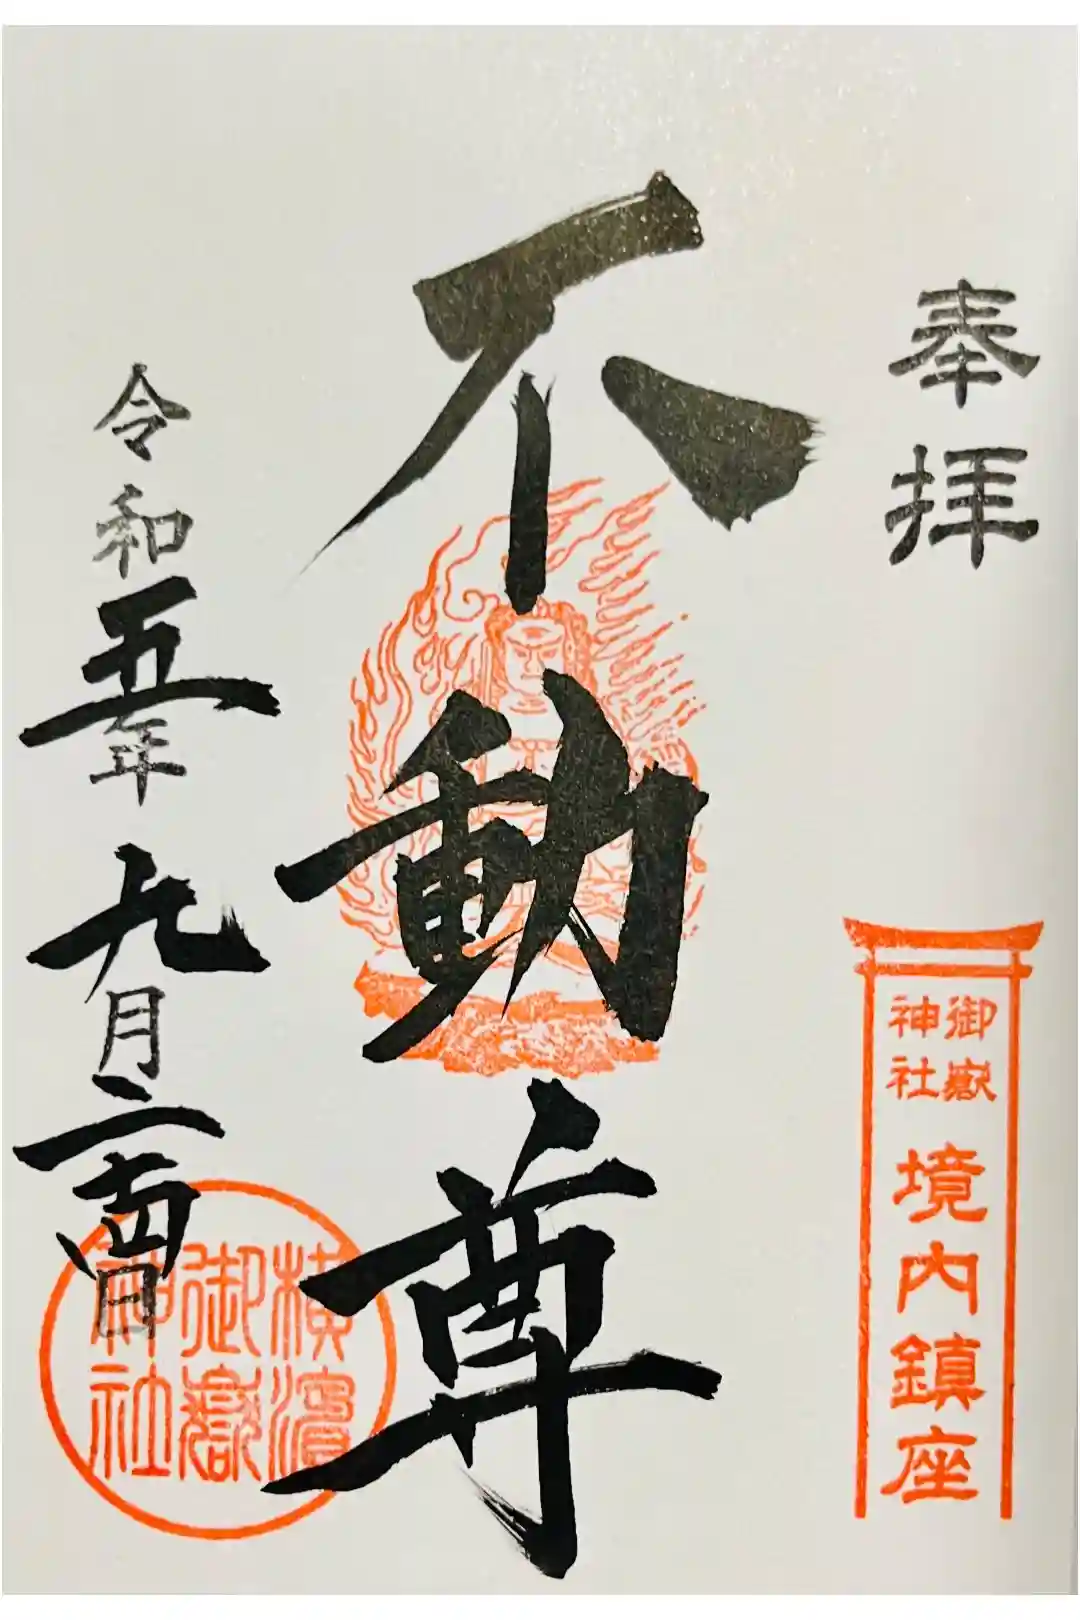 奉拝
御嶽
神社
境内鎮座
不動尊
令和五年九月二十四日
横濱
御嶽
神社